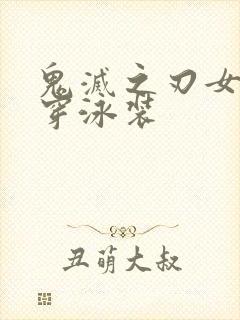 鬼滅之刃女
穿泳装
丑萌大叔